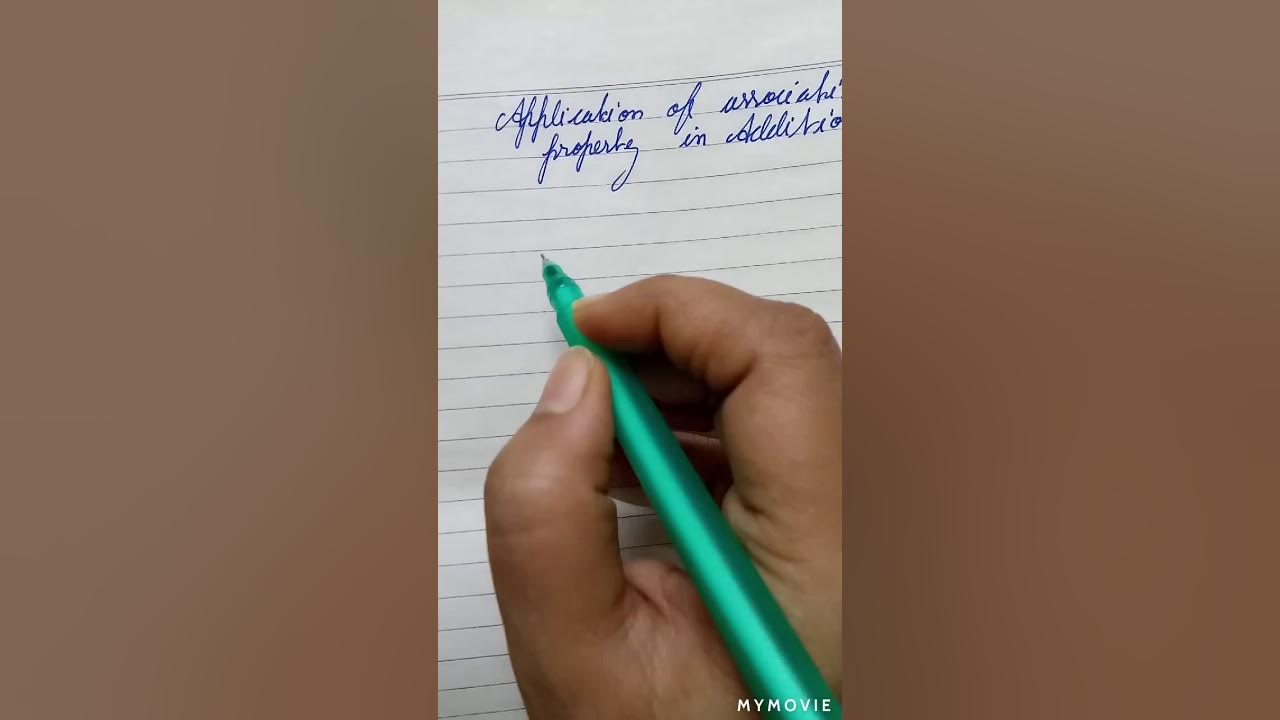 Application of associati
property in Additio
MYMOVIE